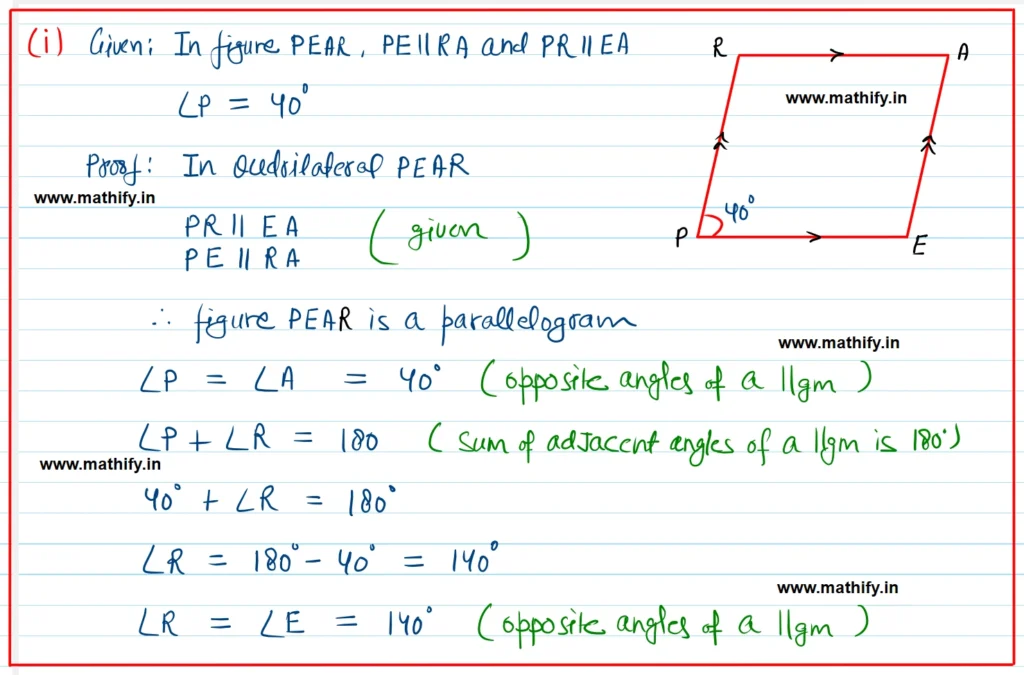 (i) Given: In figure PEAR, PE||RA and PR||EA
∠P = 40°
Proof: In Quedrilateral PEAR
www.mathify.in
PR || EA
PE || RA
(given)
R
A
www.mathify.in
40°
P
E
∴ figure PEAR is a parallelogram
www.mathify.in
∠P = ∠A = 40° (opposite angles of a ||gm)
∠P + ∠R = 180 (sum of adjacent angles of a ||gm is 180°)
www.mathify.in
40° + ∠R = 180°
∠R = 180° - 40° = 140°
www.mathify.in
∠R = ∠E = 140° (opposite angles of a ||gm)